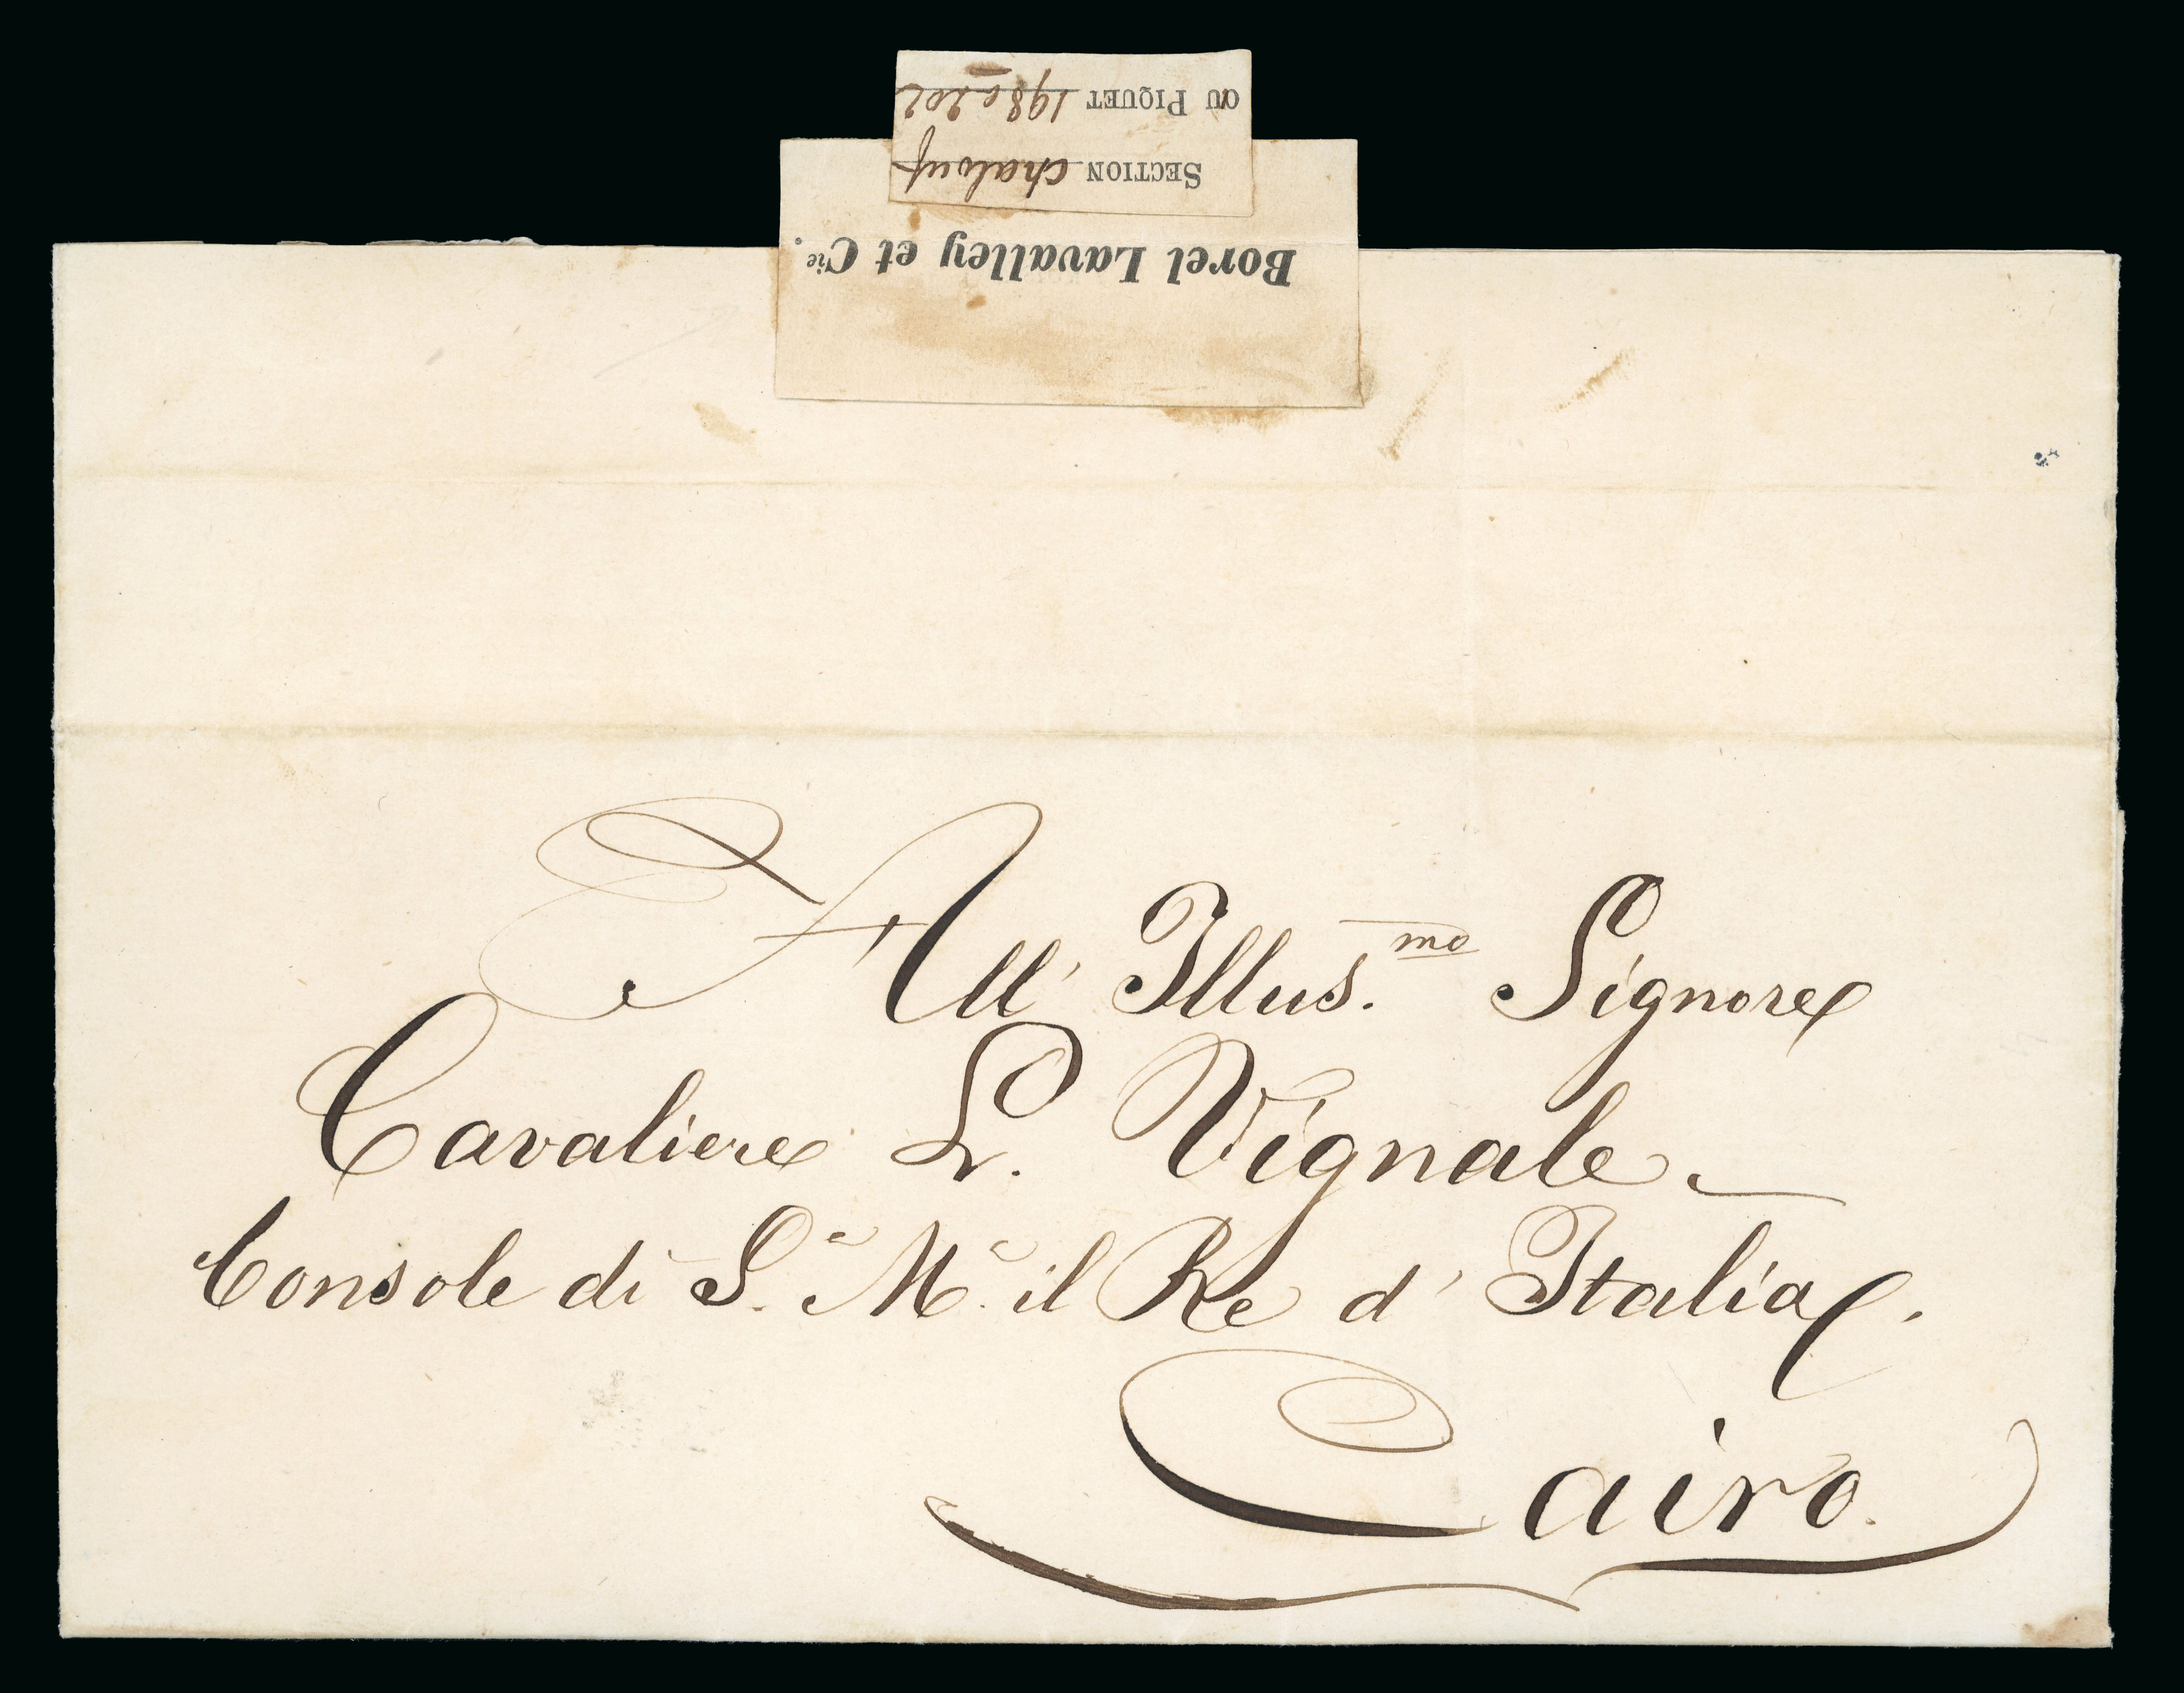 Borel Lavalley et Cie.
SECTION Chalouf
OU PIQUET 198 a 202
All' Illus.mo Signore
Cavaliere L. Vignale
Console di S. M. il Re d' Italia.
Cairo.